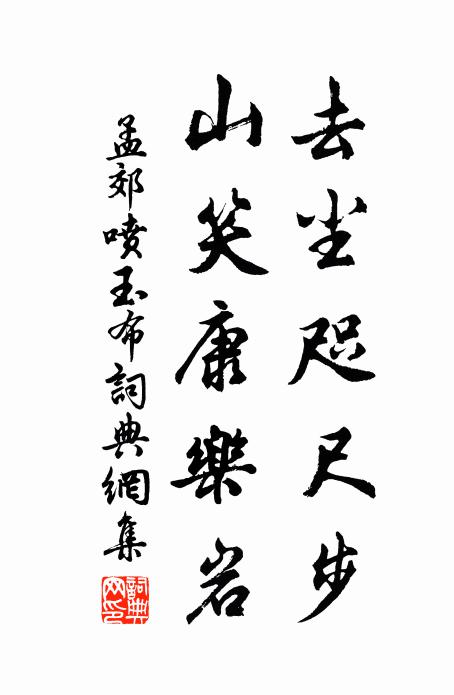 去尘咫尺步
山笑康樂岩
孟郊喷玉布詞典網集
詞典网印